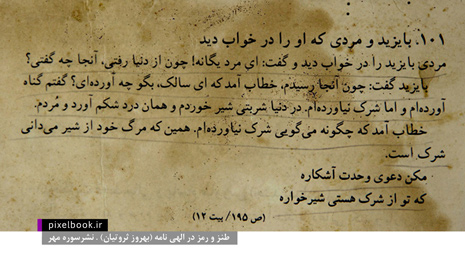 ۱۰۱. بایزید و مردی که او را در خواب دید
مردی بایزید را در خواب دید و گفت: ای مرد یگانه! چون از دنیا رفتی، آنجا چه گفتی؟
بایزید گفت: چون آنجا رسیدم، خطاب آمد که ای سالک، بگو چه آورده‌ای؟ گفتم گناه
آورده‌ام و اما شرک نیاورده‌ام. در دنیا شربتی شیر خوردم و همان درد شکم آورد و مُردم.
خطاب آمد که چگونه می‌گویی شرک نیاورده‌ام. همین که مرگ خود از شیر می‌دانی
شرک است.
مکن دعوی وحدت آشکاره
که تو از شرک هستی شیرخواره
(ص ۱۹۵/ بیت ۱۲)
pixelbook.ir
طنز و رمز در الهی نامه (بهروز ثروتیان) . نشرسوره مهر